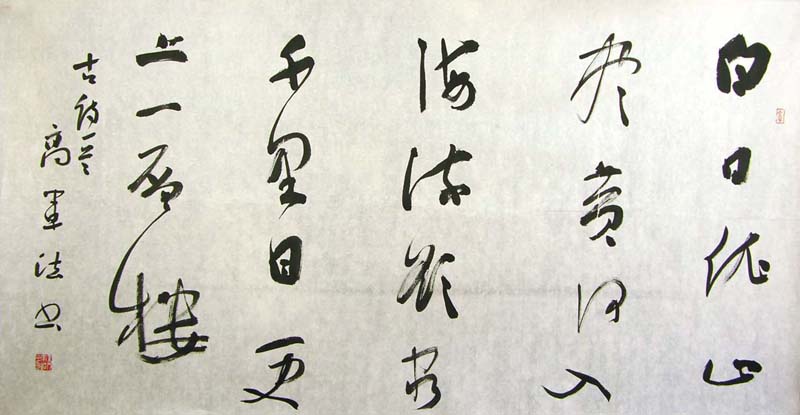 白日依山
尽黄河入
海流欲穷
千里目更
上一层楼
古诗一首
高军法书